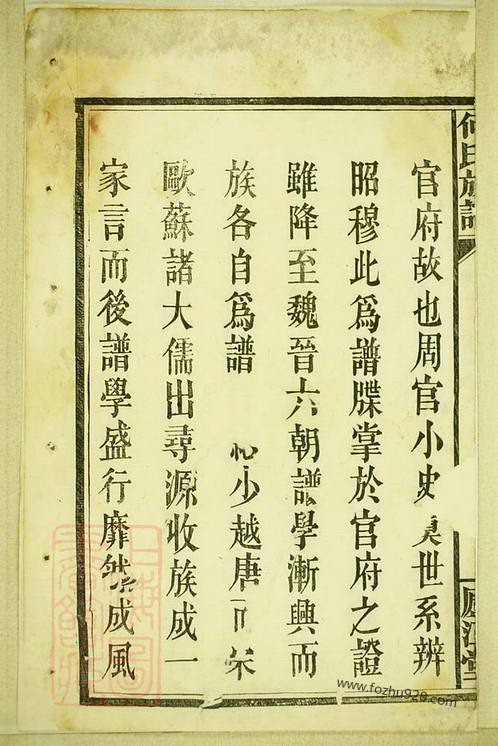 何氏族譜
廬江堂
官府故也周官小史奠世系辨
昭穆此爲譜牒掌於官府之證
雖降至魏晉六朝譜學漸興而
族各自爲譜 少越唐而宋
歐蘇諸大儒出尋源收族成一
家言而後譜學盛行靡然成風
www.fozhu920.com